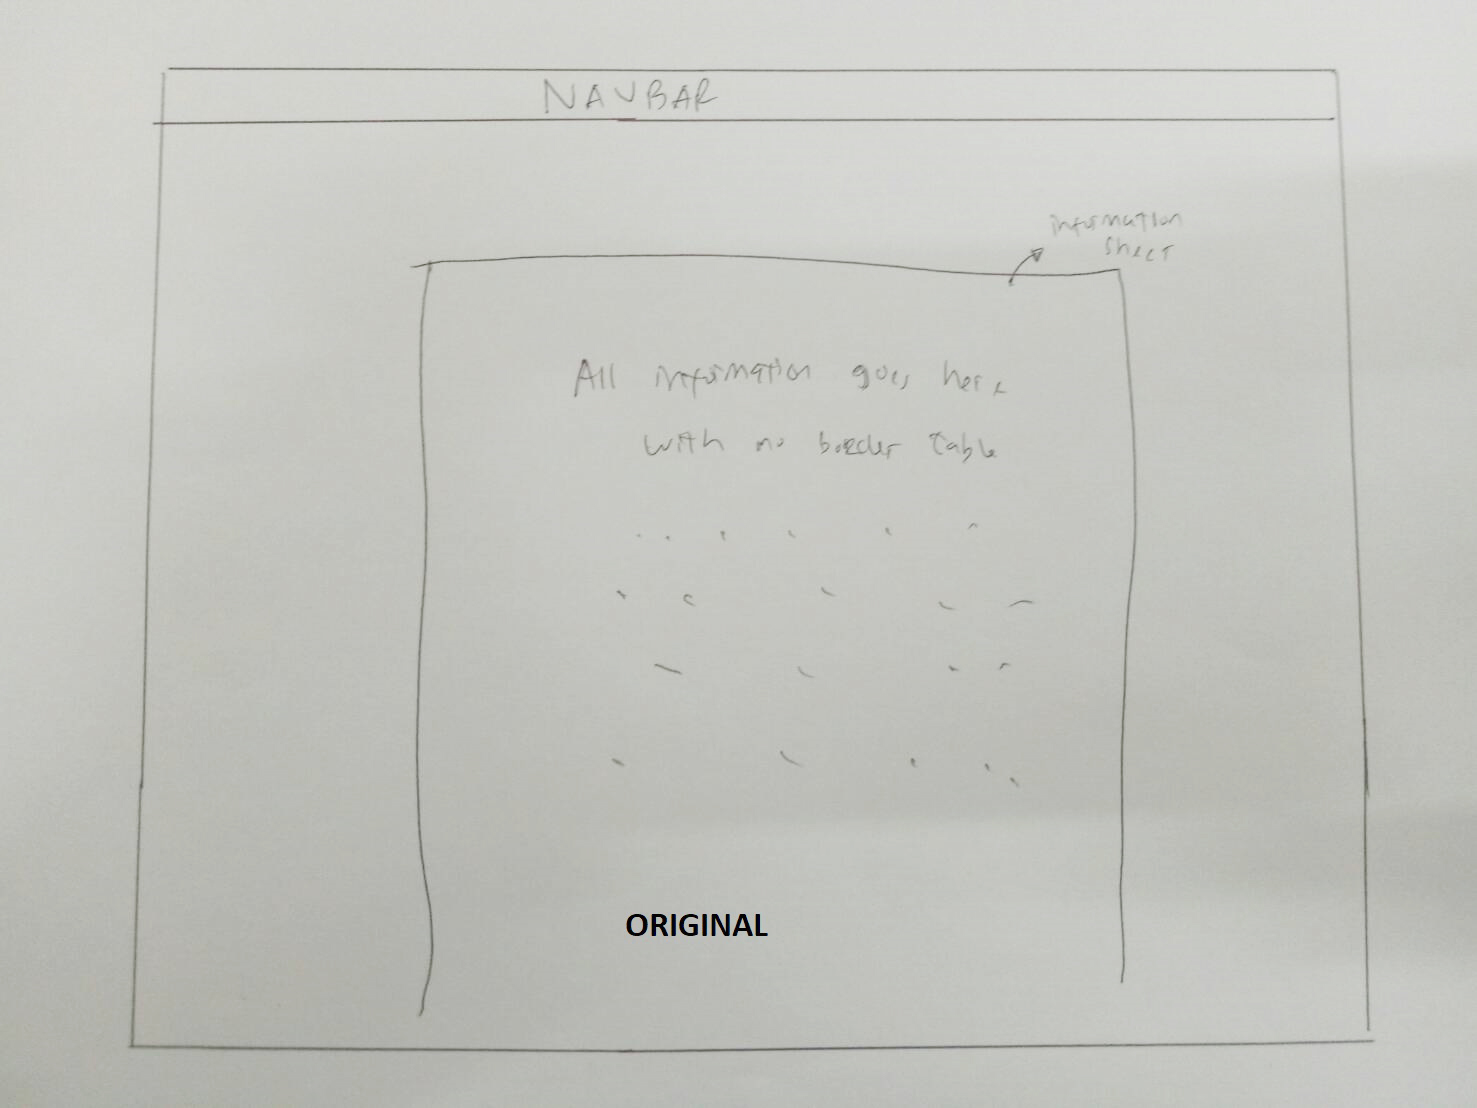 NAVBAR
information
sheet
All information goes here
with no border table
ORIGINAL